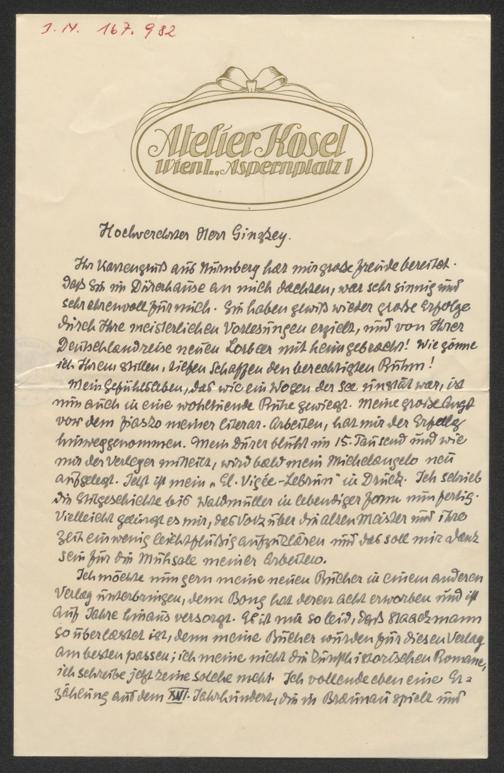 J. N. 167.982
Atelier Kosel
Wien I., Aspernplatz 1
Hochverehrter Herr Ginzkey.
Ihr Kartengruß aus Nürnberg hat mir große Freude bereitet.
Daß Sie im Dürerhause an mich dachten, war sehr sinnig und
sehr ehrenvoll für mich. Sie haben gewiß wieder große Erfolge
durch Ihre meisterlichen Vorlesungen erzielt, und von Ihrer
Deutschlandreise neuen Lorbeer mit heimgebracht! Wie gönne
ich Ihrem stillen, tiefen Schaffen den berechtigten Ruhm!
Mein Gefühlsleben, das wie ein Wogen der See unstät war, ist
nun auch in eine wohltuende Ruhe gewiegt. Meine große Angst
vor dem Fiasko meiner literar. Arbeiten, hat mir der Erfolg
hinweggenommen. Mein Dürer blüht im 15. Tausend und wie
mir der Verleger mitteilt, wird bald mein Michelangelo neu
aufgelegt. Jetzt ist mein „El. Vigée-Lebrun" in Druck. Ich schrieb
die Geschichte bis Waldmüller in lebendiger Form nun fertig.
Vielleicht gelingt es mir, das Volk über die alten Meister und ihre
Zeit ein wenig leichtflüßig aufzuklären und das soll mir Dank
sein für die Mühsale meiner Arbeiten.
Ich möchte nun gern meine neuen Bücher in einem anderen
Verlag unterbringen, denn Bong hat deren acht erworben und ist
auf Jahre hinaus versorgt. Es ist mir so leid, daß Staackmann
so überlastet ist, denn meine Bücher würden für diesen Verlag
am besten passen; ich meine nicht die kunsthistorischen Romane,
ich schreibe jetzt keine solche mehr. Ich vollende eben eine Er-
zählung aus dem XVI. Jahrhundert, die in Braunau spielt und